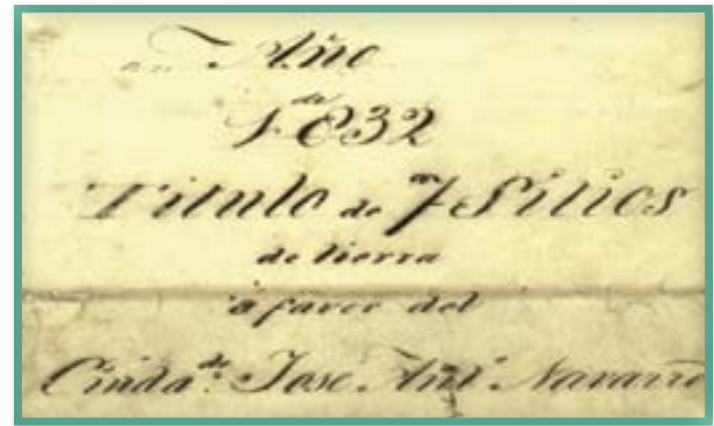 Año
de
1832
Titulo de 7 Sitios
de tierra
á favor del
Ciuda.ⁿᵒ Jose Antº Navarro